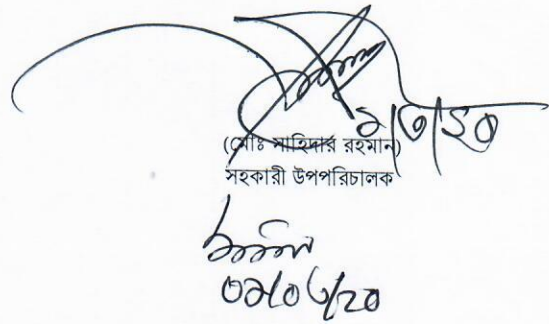 ৯/৩/২০
(মোঃ সাহিদার রহমান)
সহকারী উপপরিচালক
০৯/০৩/২০